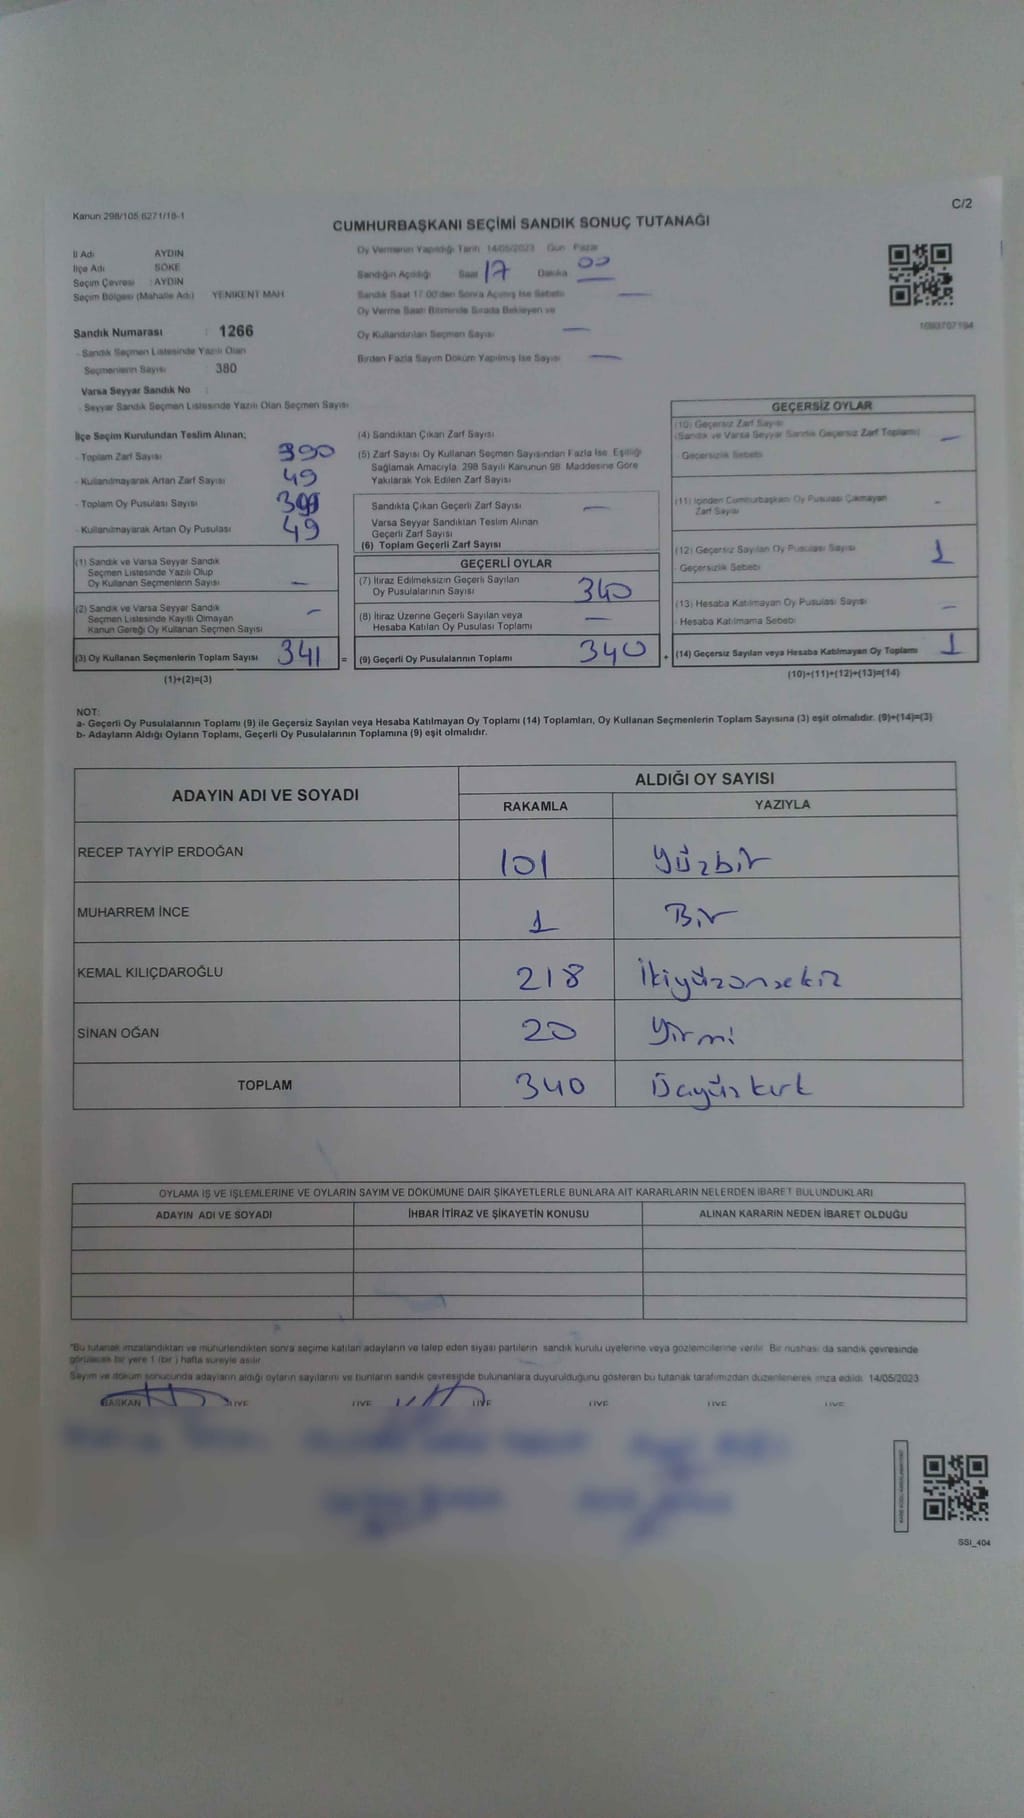 Kanun 298/105 6271/18-1
C/2
CUMHURBAŞKANI SEÇİMİ SANDIK SONUÇ TUTANAĞI
İl Adı AYDIN
İlçe Adı SÖKE
Seçim Çevresi : AYDIN
Seçim Bölgesi (Mahalle Adı) YENİKENT MAH
Sandık Numarası : 1266
- Sandık Seçmen Listesinde Yazılı Olan
Seçmenlerin Sayısı 380
Varsa Seyyar Sandık No :
- Seyyar Sandık Seçmen Listesinde Yazılı Olan Seçmen Sayısı
Oy Vermenin Yapıldığı Tarih 14/05/2023 Gün Pazar
Sandığın Açıldığı Saat 17 Dakika 00
Sandık Saat 17:00'den Sonra Açılmış İse Sebebi —
Oy Verme Saati Bitiminde Sırada Bekleyen ve
Oy Kullandırılan Seçmen Sayısı —
Birden Fazla Sayım Döküm Yapılmış İse Sayısı —
1093707194
İlçe Seçim Kurulundan Teslim Alınan;
- Toplam Zarf Sayısı 390
- Kullanılmayarak Artan Zarf Sayısı 49
- Toplam Oy Pusulası Sayısı
- Kullanılmayarak Artan Oy Pusulası 49
(1) Sandık ve Varsa Seyyar Sandık
Seçmen Listesinde Yazılı Olup
Oy Kullanan Seçmenlerin Sayısı —
(2) Sandık ve Varsa Seyyar Sandık
Seçmen Listesinde Kayıtlı Olmayan
Kanun Gereği Oy Kullanan Seçmen Sayısı —
(3) Oy Kullanan Seçmenlerin Toplam Sayısı 341 =
(1)+(2)=(3)
(4) Sandıktan Çıkan Zarf Sayısı
(5) Zarf Sayısı Oy Kullanan Seçmen Sayısından Fazla İse Eşitliği
Sağlamak Amacıyla 298 Sayılı Kanunun 98. Maddesine Göre
Yakılarak Yok Edilen Zarf Sayısı
Sandıkta Çıkan Geçerli Zarf Sayısı —
Varsa Seyyar Sandıktan Teslim Alınan
Geçerli Zarf Sayısı
(6) Toplam Geçerli Zarf Sayısı
GEÇERLİ OYLAR
(7) İtiraz Edilmeksizin Geçerli Sayılan
Oy Pusulalarının Sayısı 340
(8) İtiraz Üzerine Geçerli Sayılan veya
Hesaba Katılan Oy Pusulası Toplamı —
(9) Geçerli Oy Pusulalarının Toplamı 340 +
GEÇERSİZ OYLAR
(10) Geçersiz Zarf Sayısı
(Sandık ve Varsa Seyyar Sandık Geçersiz Zarf Toplamı) —
Geçersizlik Sebebi
(11) İçinden Cumhurbaşkanı Oy Pusulası Çıkmayan
Zarf Sayısı -
(12) Geçersiz Sayılan Oy Pusulası Sayısı 1
Geçersizlik Sebebi
(13) Hesaba Katılmayan Oy Pusulası Sayısı —
Hesaba Katılmama Sebebi
(14) Geçersiz Sayılan veya Hesaba Katılmayan Oy Toplamı 1
(10)+(11)+(12)+(13)=(14)
NOT:
a- Geçerli Oy Pusulalarının Toplamı (9) ile Geçersiz Sayılan veya Hesaba Katılmayan Oy Toplamı (14) Toplamları, Oy Kullanan Seçmenlerin Toplam Sayısına (3) eşit olmalıdır. (9)+(14)=(3)
b- Adayların Aldığı Oyların Toplamı, Geçerli Oy Pusulalarının Toplamına (9) eşit olmalıdır.
ADAYIN ADI VE SOYADI ALDIĞI OY SAYISI
RAKAMLA YAZIYLA
RECEP TAYYİP ERDOĞAN 101 Yüzbir
MUHARREM İNCE 1 Bir
KEMAL KILIÇDAROĞLU 218 İkiyüzonsekiz
SİNAN OĞAN 20 Yirmi
TOPLAM 340 Üçyüzkırk
OYLAMA İŞ VE İŞLEMLERİNE VE OYLARIN SAYIM VE DÖKÜMÜNE DAİR ŞİKAYETLERLE BUNLARA AİT KARARLARIN NELERDEN İBARET BULUNDUKLARI
ADAYIN ADI VE SOYADI İHBAR İTİRAZ VE ŞİKAYETİN KONUSU ALINAN KARARIN NEDEN İBARET OLDUĞU
*Bu tutanak imzalandıktan ve mühürlendikten sonra seçime katılan adayların ve talep eden siyasi partilerin sandık kurulu üyelerine veya gözlemcilerine verilir. Bir nüshası da sandık çevresinde
görülecek bir yere 1 (bir) hafta süreyle asılır.
Sayım ve döküm sonucunda adayların aldığı oyların sayılarını ve bunların sandık çevresinde bulunanlara duyurulduğunu gösteren bu tutanak tarafımızdan düzenlenerek imza edildi. 14/05/2023
BAŞKAN ÜYE ÜYE ÜYE ÜYE ÜYE ÜYE
SSI_404